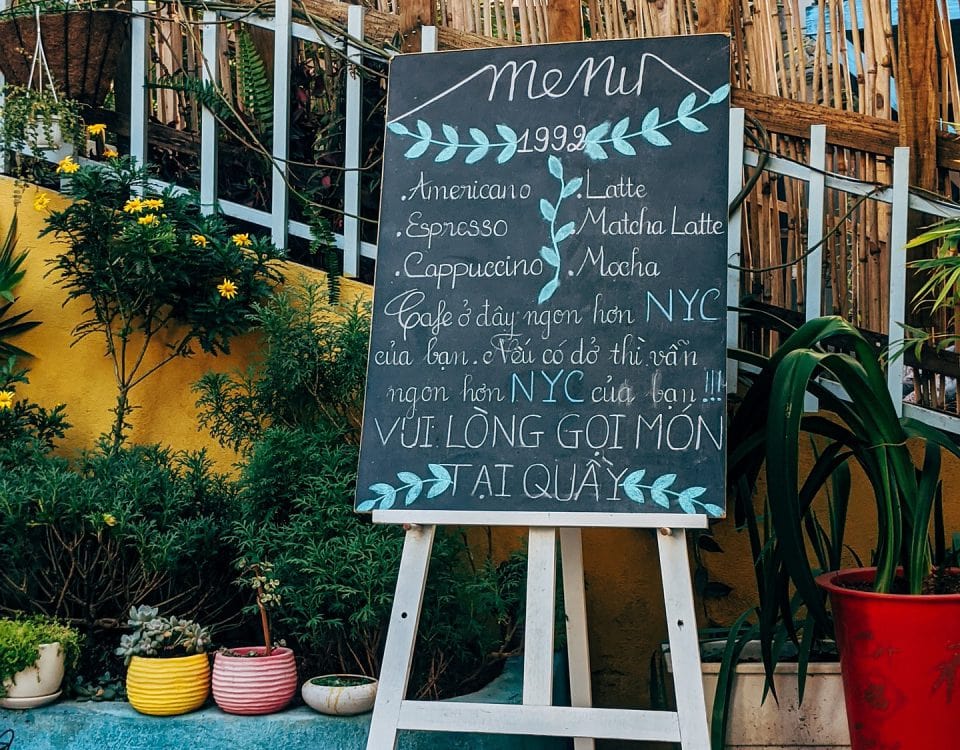 Menu
1992
.Americano .Latte
.Espresso .Matcha Latte
.Cappuccino .Mocha
Cafe ở đây ngon hơn NYC
của bạn. Nếu có dở thì vẫn
ngon hơn NYC của bạn!!!
VUI LÒNG GỌI MÓN
TẠI QUẦY